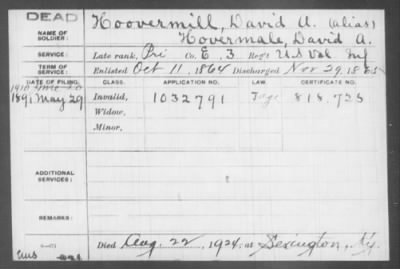 DEAD
NAME OF SOLDIER:
Hoovermill, David A. (alias)
Hovermale, David A.
SERVICE:
Late rank, Pri Co. E. 3 Reg't U.S Vol Inf
TERM OF SERVICE:
Enlisted Oct 11, 1864 Discharged Nov 29, 1865
DATE OF FILING. CLASS. APPLICATION NO. LAW. CERTIFICATE NO.
1891 May 29 Invalid, 1032791 818,725
Widow,
Minor,
ADDITIONAL SERVICES:
REMARKS:
Died Aug. 22, 1924, at Lexington, Ky.